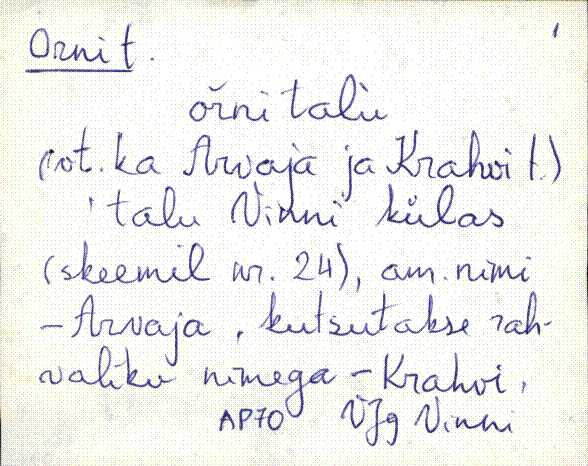 Orni t.
oŕni talù
(vt. ka Arvaja ja Krahvi t.)
' talu Vinni külas
(skeemil nr. 24), am. nimi
- Arvaja, kutsutakse rah-
valiku nimega - Krahvi,
AP70 VJg Vinni